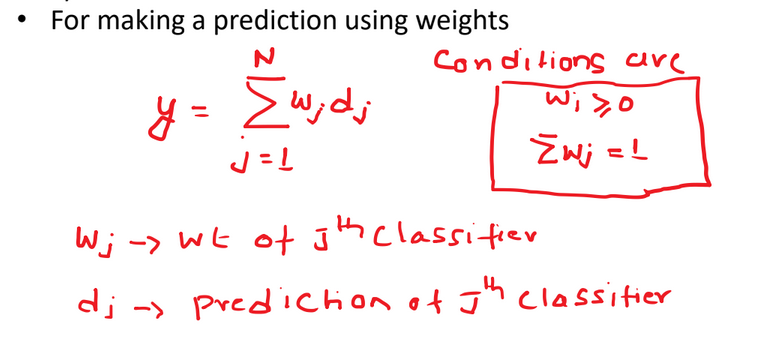 • For making a prediction using weights
Conditions are
y = N Σ j=1 wj dj
wi ≥ 0
Σ wj = 1
Wj → wt of Jth classifier
dj → prediction of Jth classifier